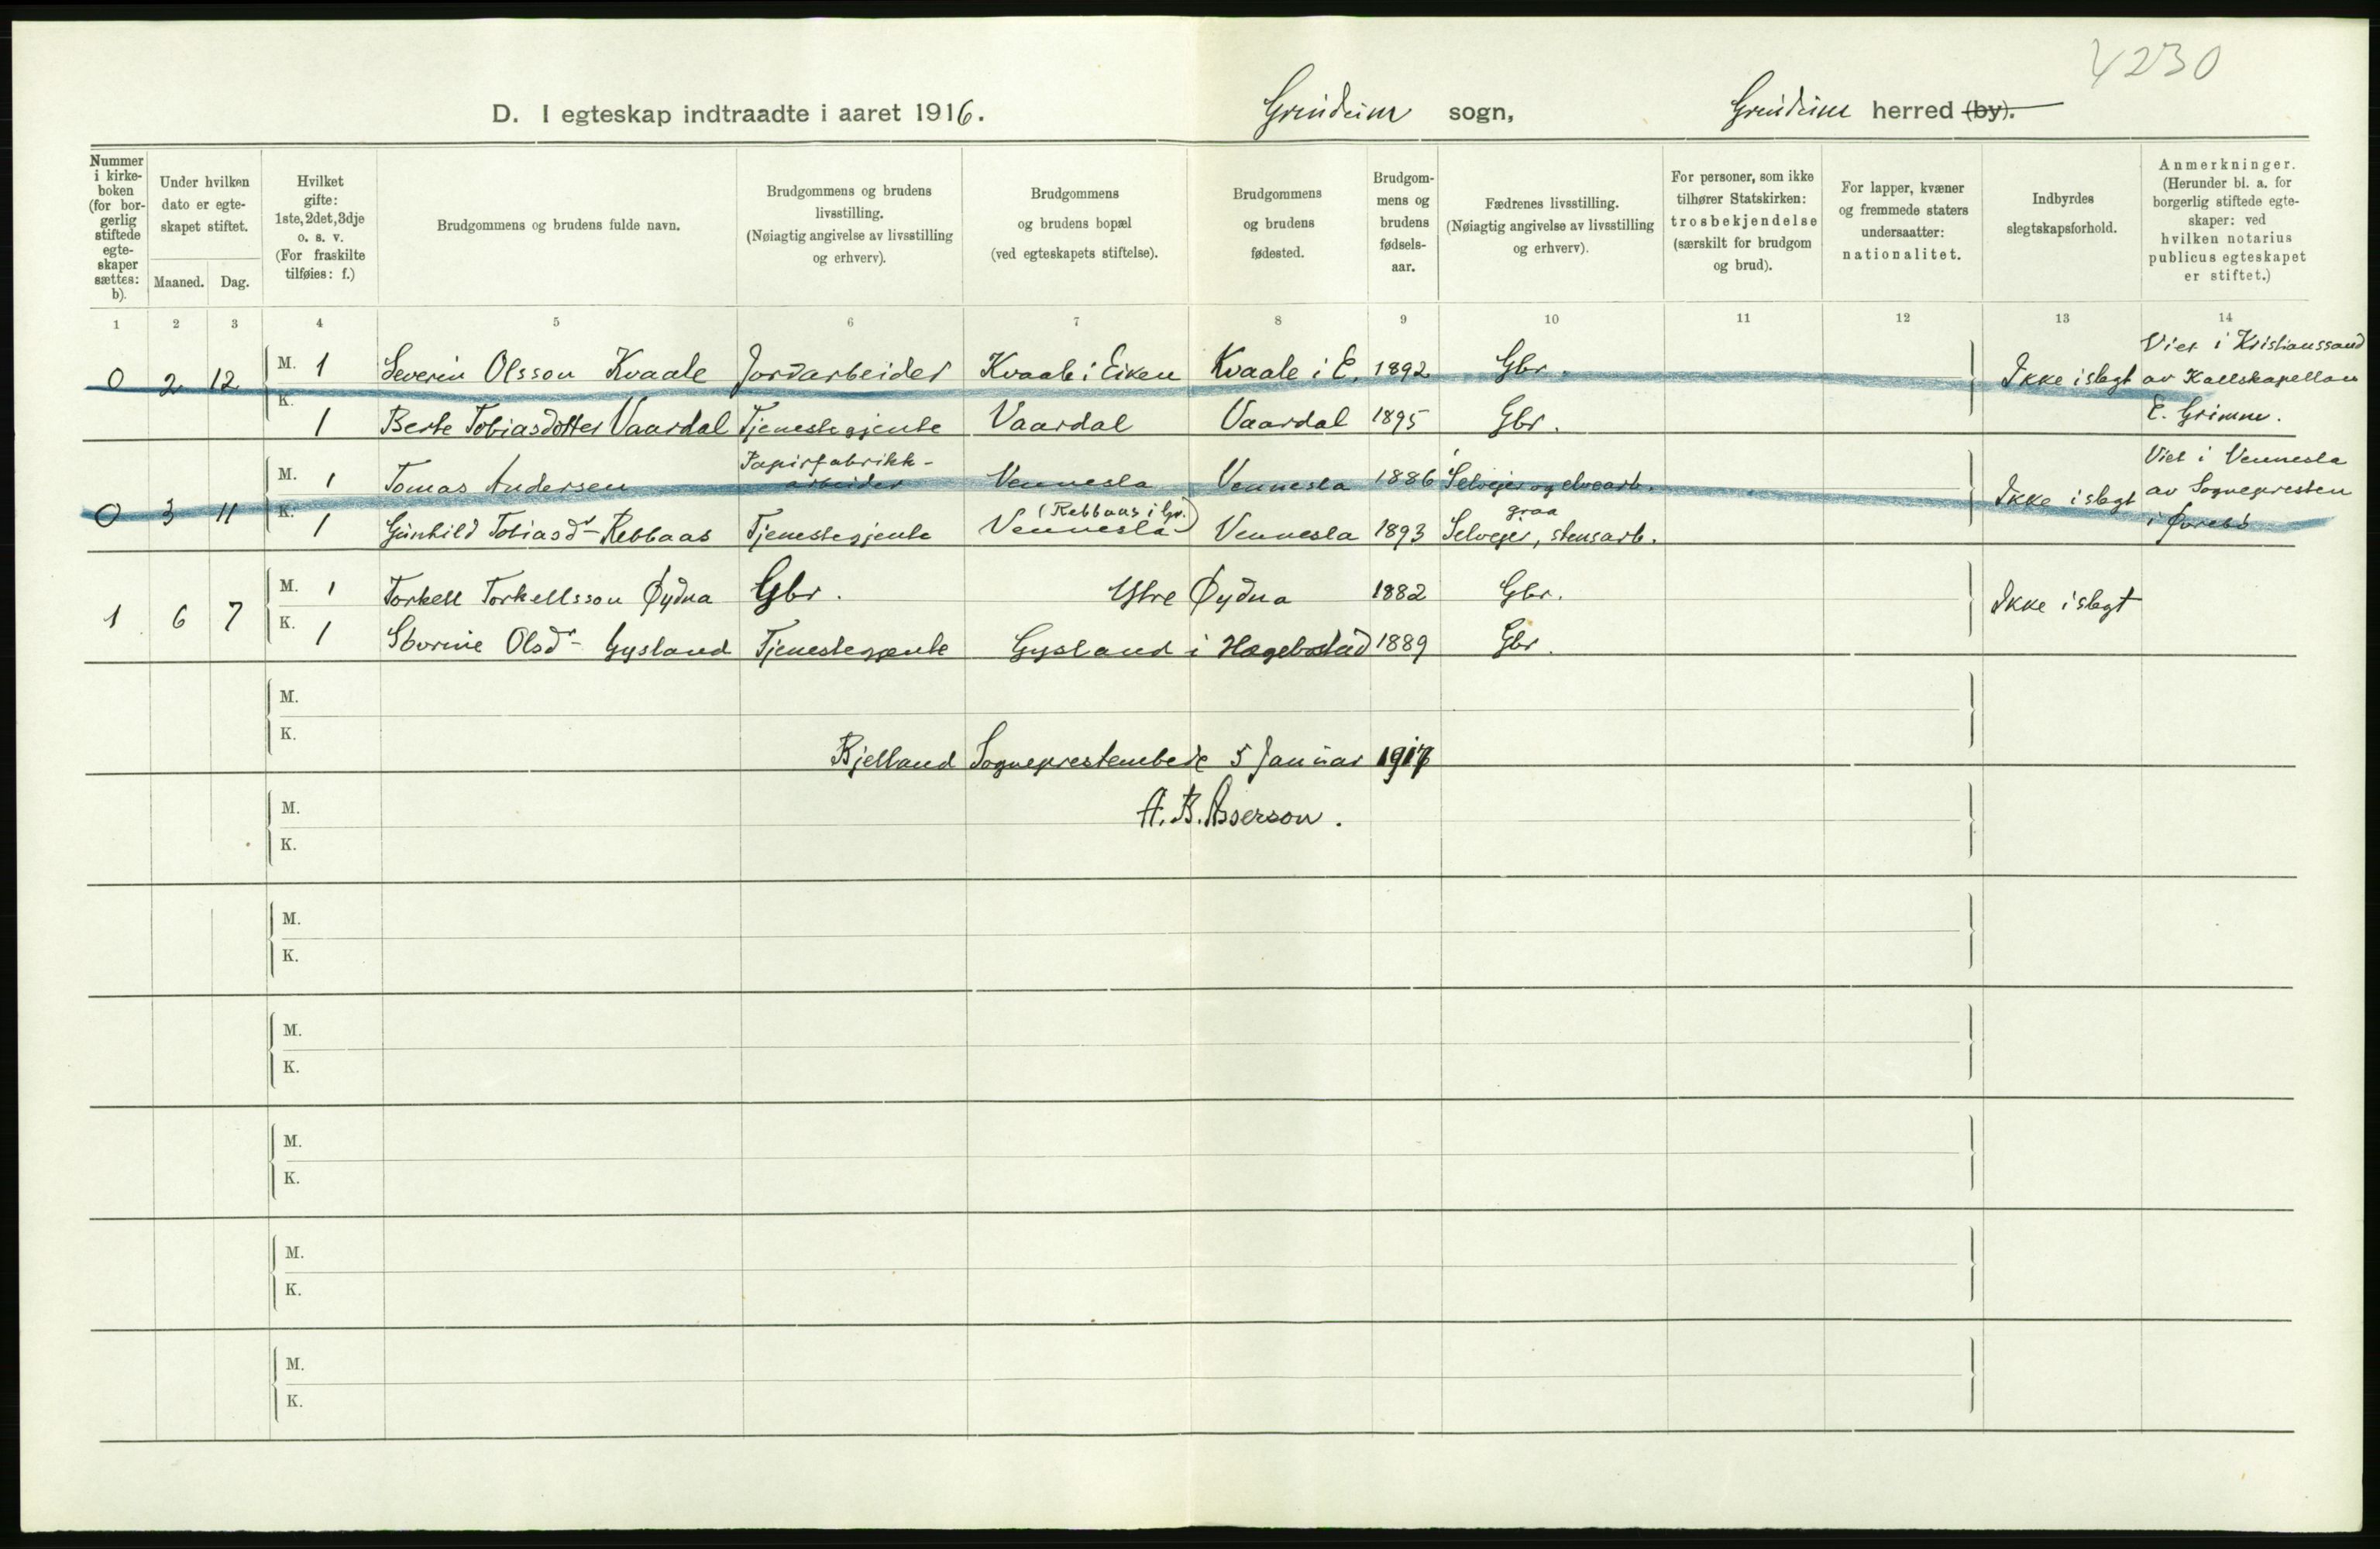 4230
D. I egteskap indtraadte i aaret 1916. Grindeim sogn, Grindeim herred (by).
Nummer i kirkeboken (for borgerlig stiftede egteskaper sættes: b).
Under hvilken dato er egteskapet stiftet.
Maaned. Dag.
Hvilket gifte: 1ste, 2det, 3dje o. s. v. (For fraskilte tilføies: f.)
Brudgommens og brudens fulde navn.
Brudgommens og brudens livsstilling. (Nøiagtig angivelse av livsstilling og erhverv).
Brudgommens og brudens bopæl (ved egteskapets stiftelse).
Brudgommens og brudens fødested.
Brudgommens og brudens fødselsaar.
Fædrenes livsstilling. (Nøiagtig angivelse av livsstilling og erhverv).
For personer, som ikke tilhører Statskirken: trosbekjendelse (særskilt for brudgom og brud).
For lapper, kvæner og fremmede staters undersaatter: nationalitet.
Indbyrdes slegtskapsforhold.
Anmerkninger. (Herunder bl. a. for borgerlig stiftede egteskaper: ved hvilken notarius publicus egteskapet er stiftet.)
1 2 3 4 5 6 7 8 9 10 11 12 13 14
0 2 12 M. 1 Severin Olsson Kvaale Jordarbeider Kvaale i Eiken Kvaale i E. 1892 Gbr. Ikke i slegt Viet i Kristianssand av Kallskapellan E. Grimm.
K. 1 Berte Tobiasdotter Vaardal Tjenestegjente Vaardal Vaardal 1895 Gbr.
0 3 11 M. 1 Tomas Andersen Papirfabrikkarbeider Vennesla Vennesla 1886 Selveier og elvearb. Ikke i slegt Viet i Vennesla av Sognepresten i Øvrebö
K. 1 Gunhild Tobiasdr Rebbaas Tjenestegjente Vennesla (Rebbaas i Gr.) Vennesla 1893 Selveier, graastensarb.
1 6 7 M. 1 Torkell Torkellsson Øydna Gbr. Ytre Øydna 1882 Gbr. Ikke i slegt
K. 1 Olsdr Gysland Tjenestegjente Gysland i Hægebostad 1889 Gbr.
M.
K.
Bjelland Sogneprestembede 5 Januar 1917
M.
A. B. Asserson.
K.
M.
K.
M.
K.
M.
K.
M.
K.
M.
K.